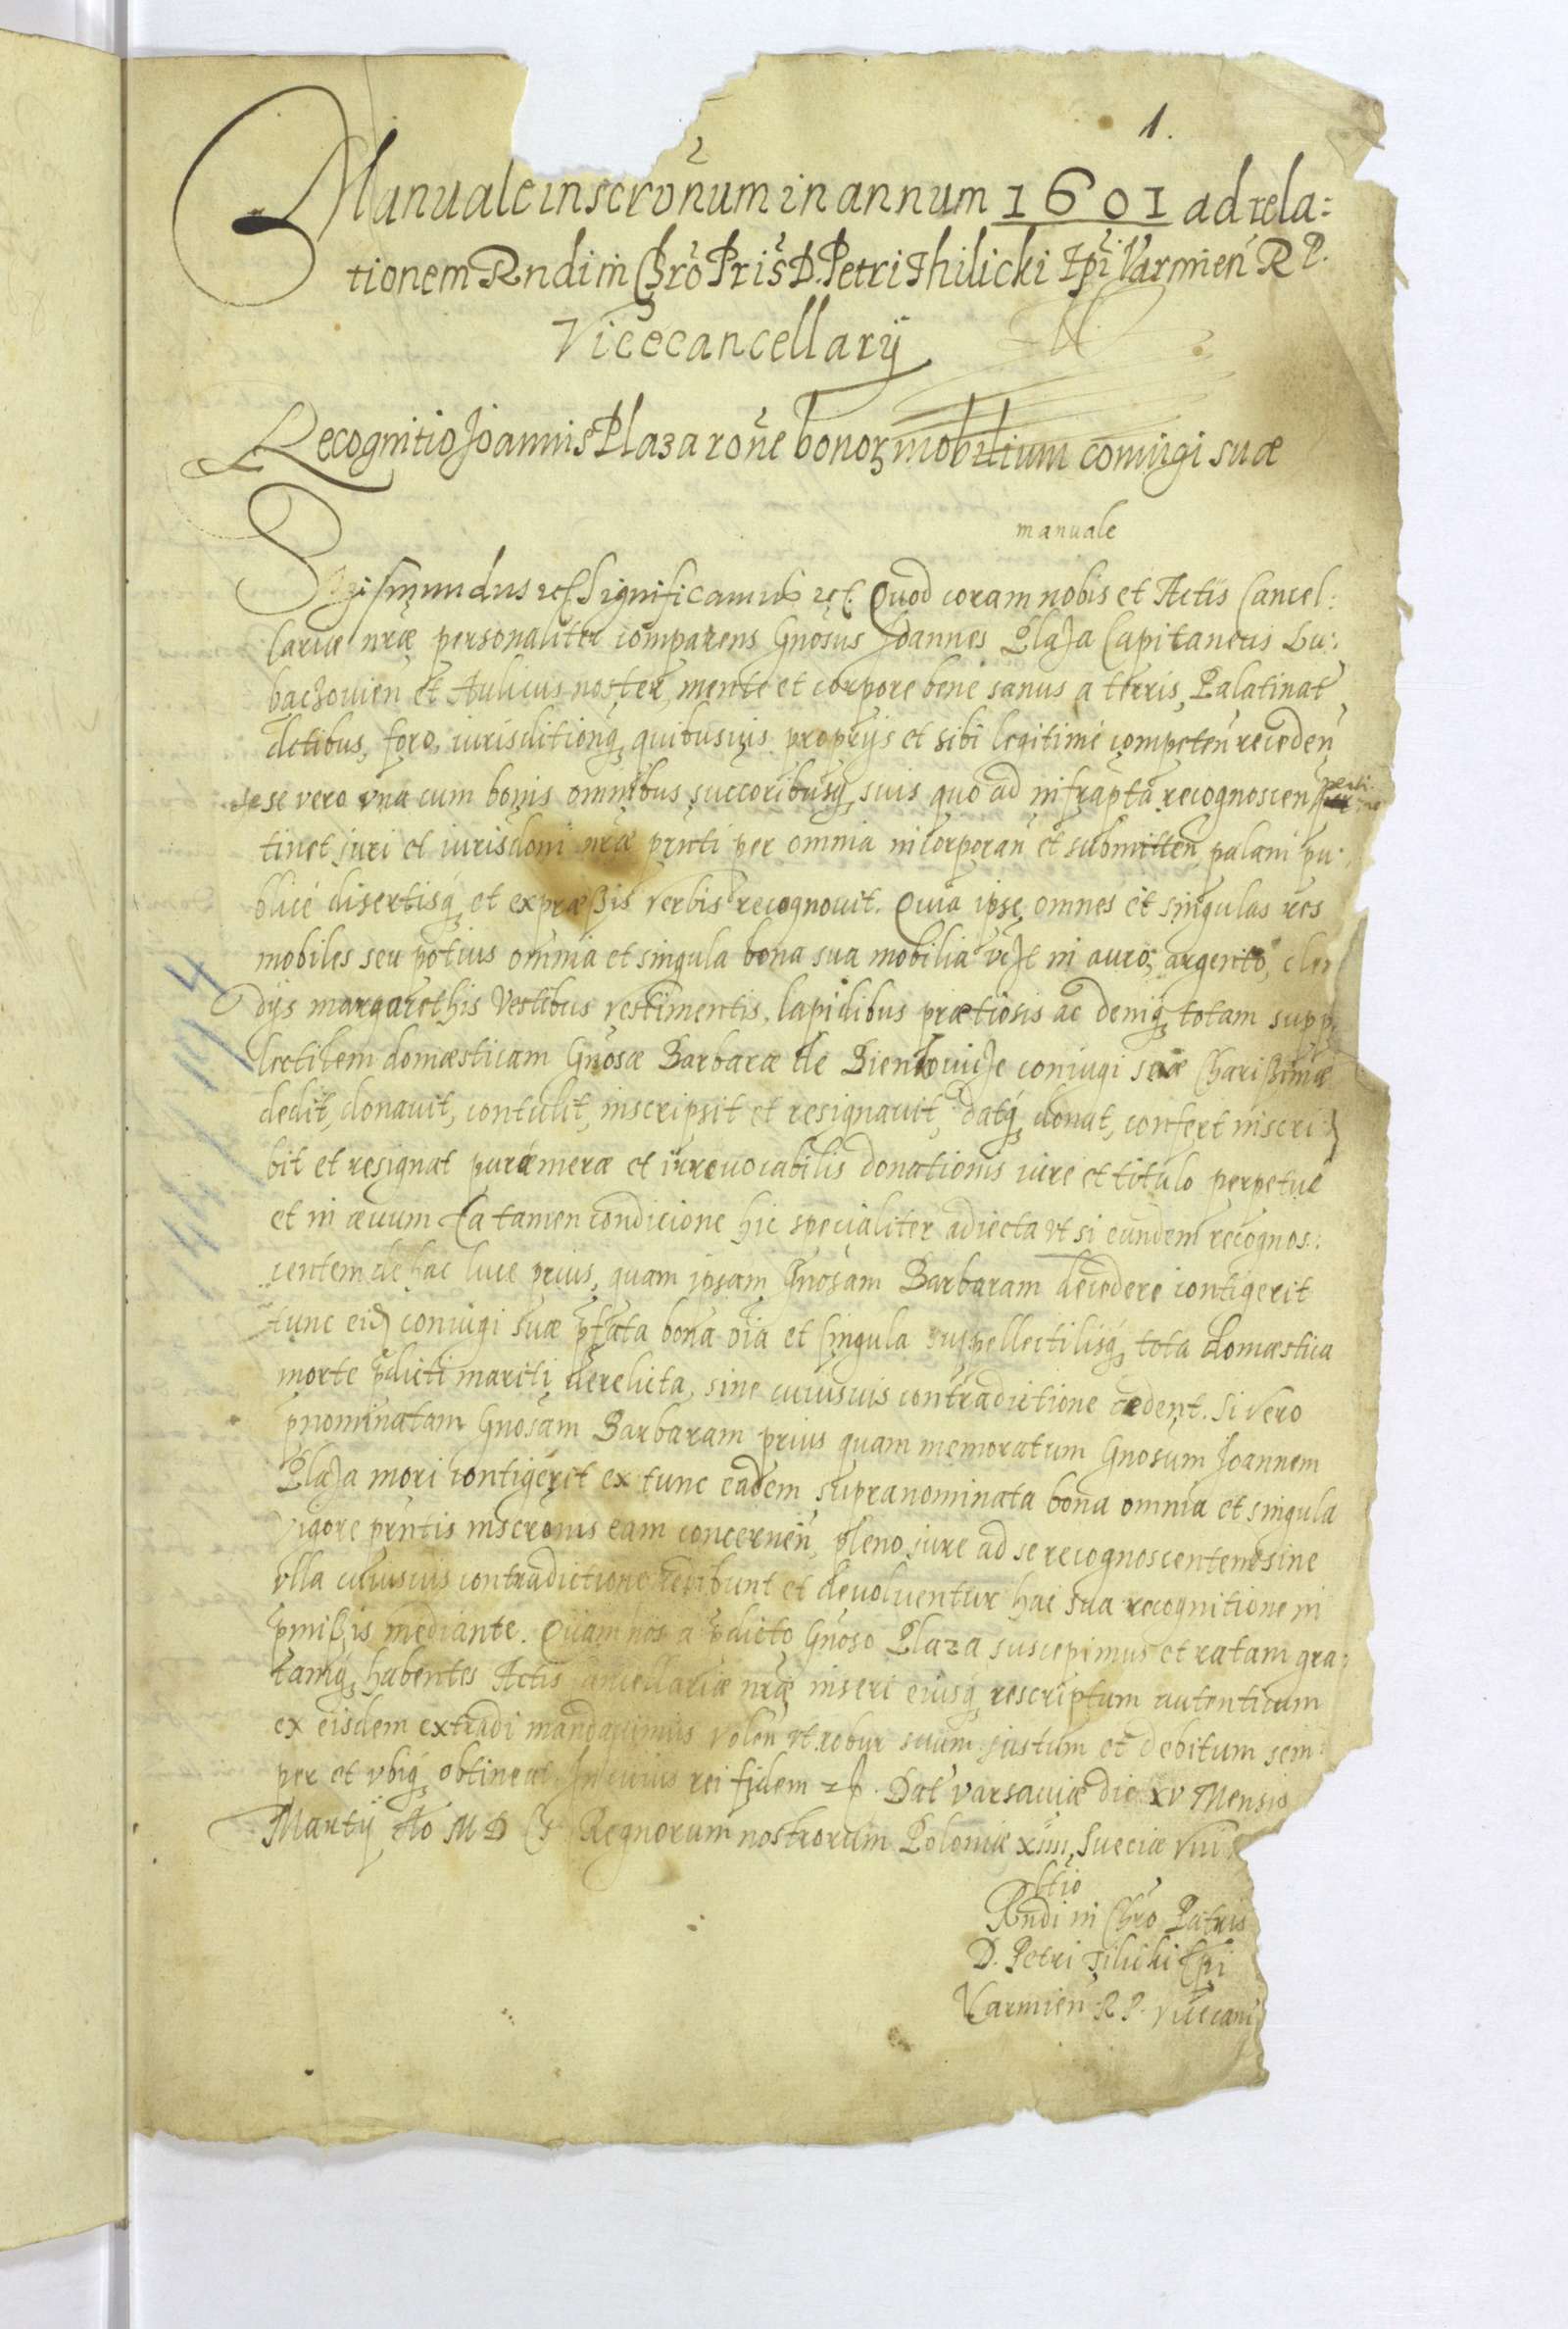 1.
Manuale inscrõnum in annum 1601 ad rela:
tionem Rndi in Chro Pris D. Petri Thilicki Epi Varmien R P.
Vicecancellarij
Recognitio Joannis Plaza rone bonor mobilium coniugi suæ
manuale
Sigismundus etc. Significamus etc. Quod coram nobis et Actis Cancel:
lariæ nræ personaliter comparens Gnosus Joannes Plaza Capitaneus Lu:
baczovien et Aulicus noster, mente et corpore bene sanus a terris, Palatinat
dctibus, foro, iurisditionq quibusuis proprijs et sibi legitimè competen receden
sese vero vna cum bonis omnibus succoribusq suis quo ad infrapta recognoscen perti:
tinet juri et iurisdoni nræ pnti per omnia incorporan et submitten palam pu:
blicè disertisq et expræßis verbis recognouit. Quia ipse omnes et singulas res
mobiles seu potius omnia et singula bona sua mobilia vczt in auro, argento, cley
dijs margarethis Vestibus vestimentis, lapidibus prætiosis ac deniq totam supp
lectilem domæsticam Gnosæ Barbaræ de coniugi suæ Charißimæ
dedit, donauit, contulit, inscripsit et resignauit, datq donat, confert inscri
bit et resignat puræ meræ et irreuocabilis donationis iure et titulo perpetuè
et in æuum Ea tamen condicione hic specialiter adiecta vt si eundem recognos:
centem de hac luce prius, quam ipsam Gnosam Barbaram decedere contigerit
tunc eid coniugi suæ pfata bona oia et singula suppellectilisq tota domæstica
morte pdicti mariti derelicta, sine cuiusuis contradictione cedent. Si vero
pnominatam Gnosam Barbaram prius quam memoratum Gnosum Joannem
Plaza mori contigerit ex tunc eadem supranominata bona omnia et singula
vigore pntis inscronis eam concernen, pleno jure ad se recognoscentem sine
vlla cuiusuis contradictione redibunt et deuoluentur hac sua recognitione in
pmißis mediante. Quam nos a pdicto Gnoso Plaza suscepimus et ratam gra:
tamq habentes Actis Cancellariæ nræ inseri eiusq rescriptum autenticum
ex eisdem extradi mandauimus volen vt robur suum justum et debitum sem:
per et vbiq obtineat. In cuius rei fidem etc. Dat Varsauiæ die xv Mensis
Martij Ao M D CI Regnorum nostrorum Poloniæ xiiii, Sueciæ Viii
Rltio
Rndi in Chro Patris
D. Petri Tilicki Epi
Varmien R P. Vicecanc
144/194